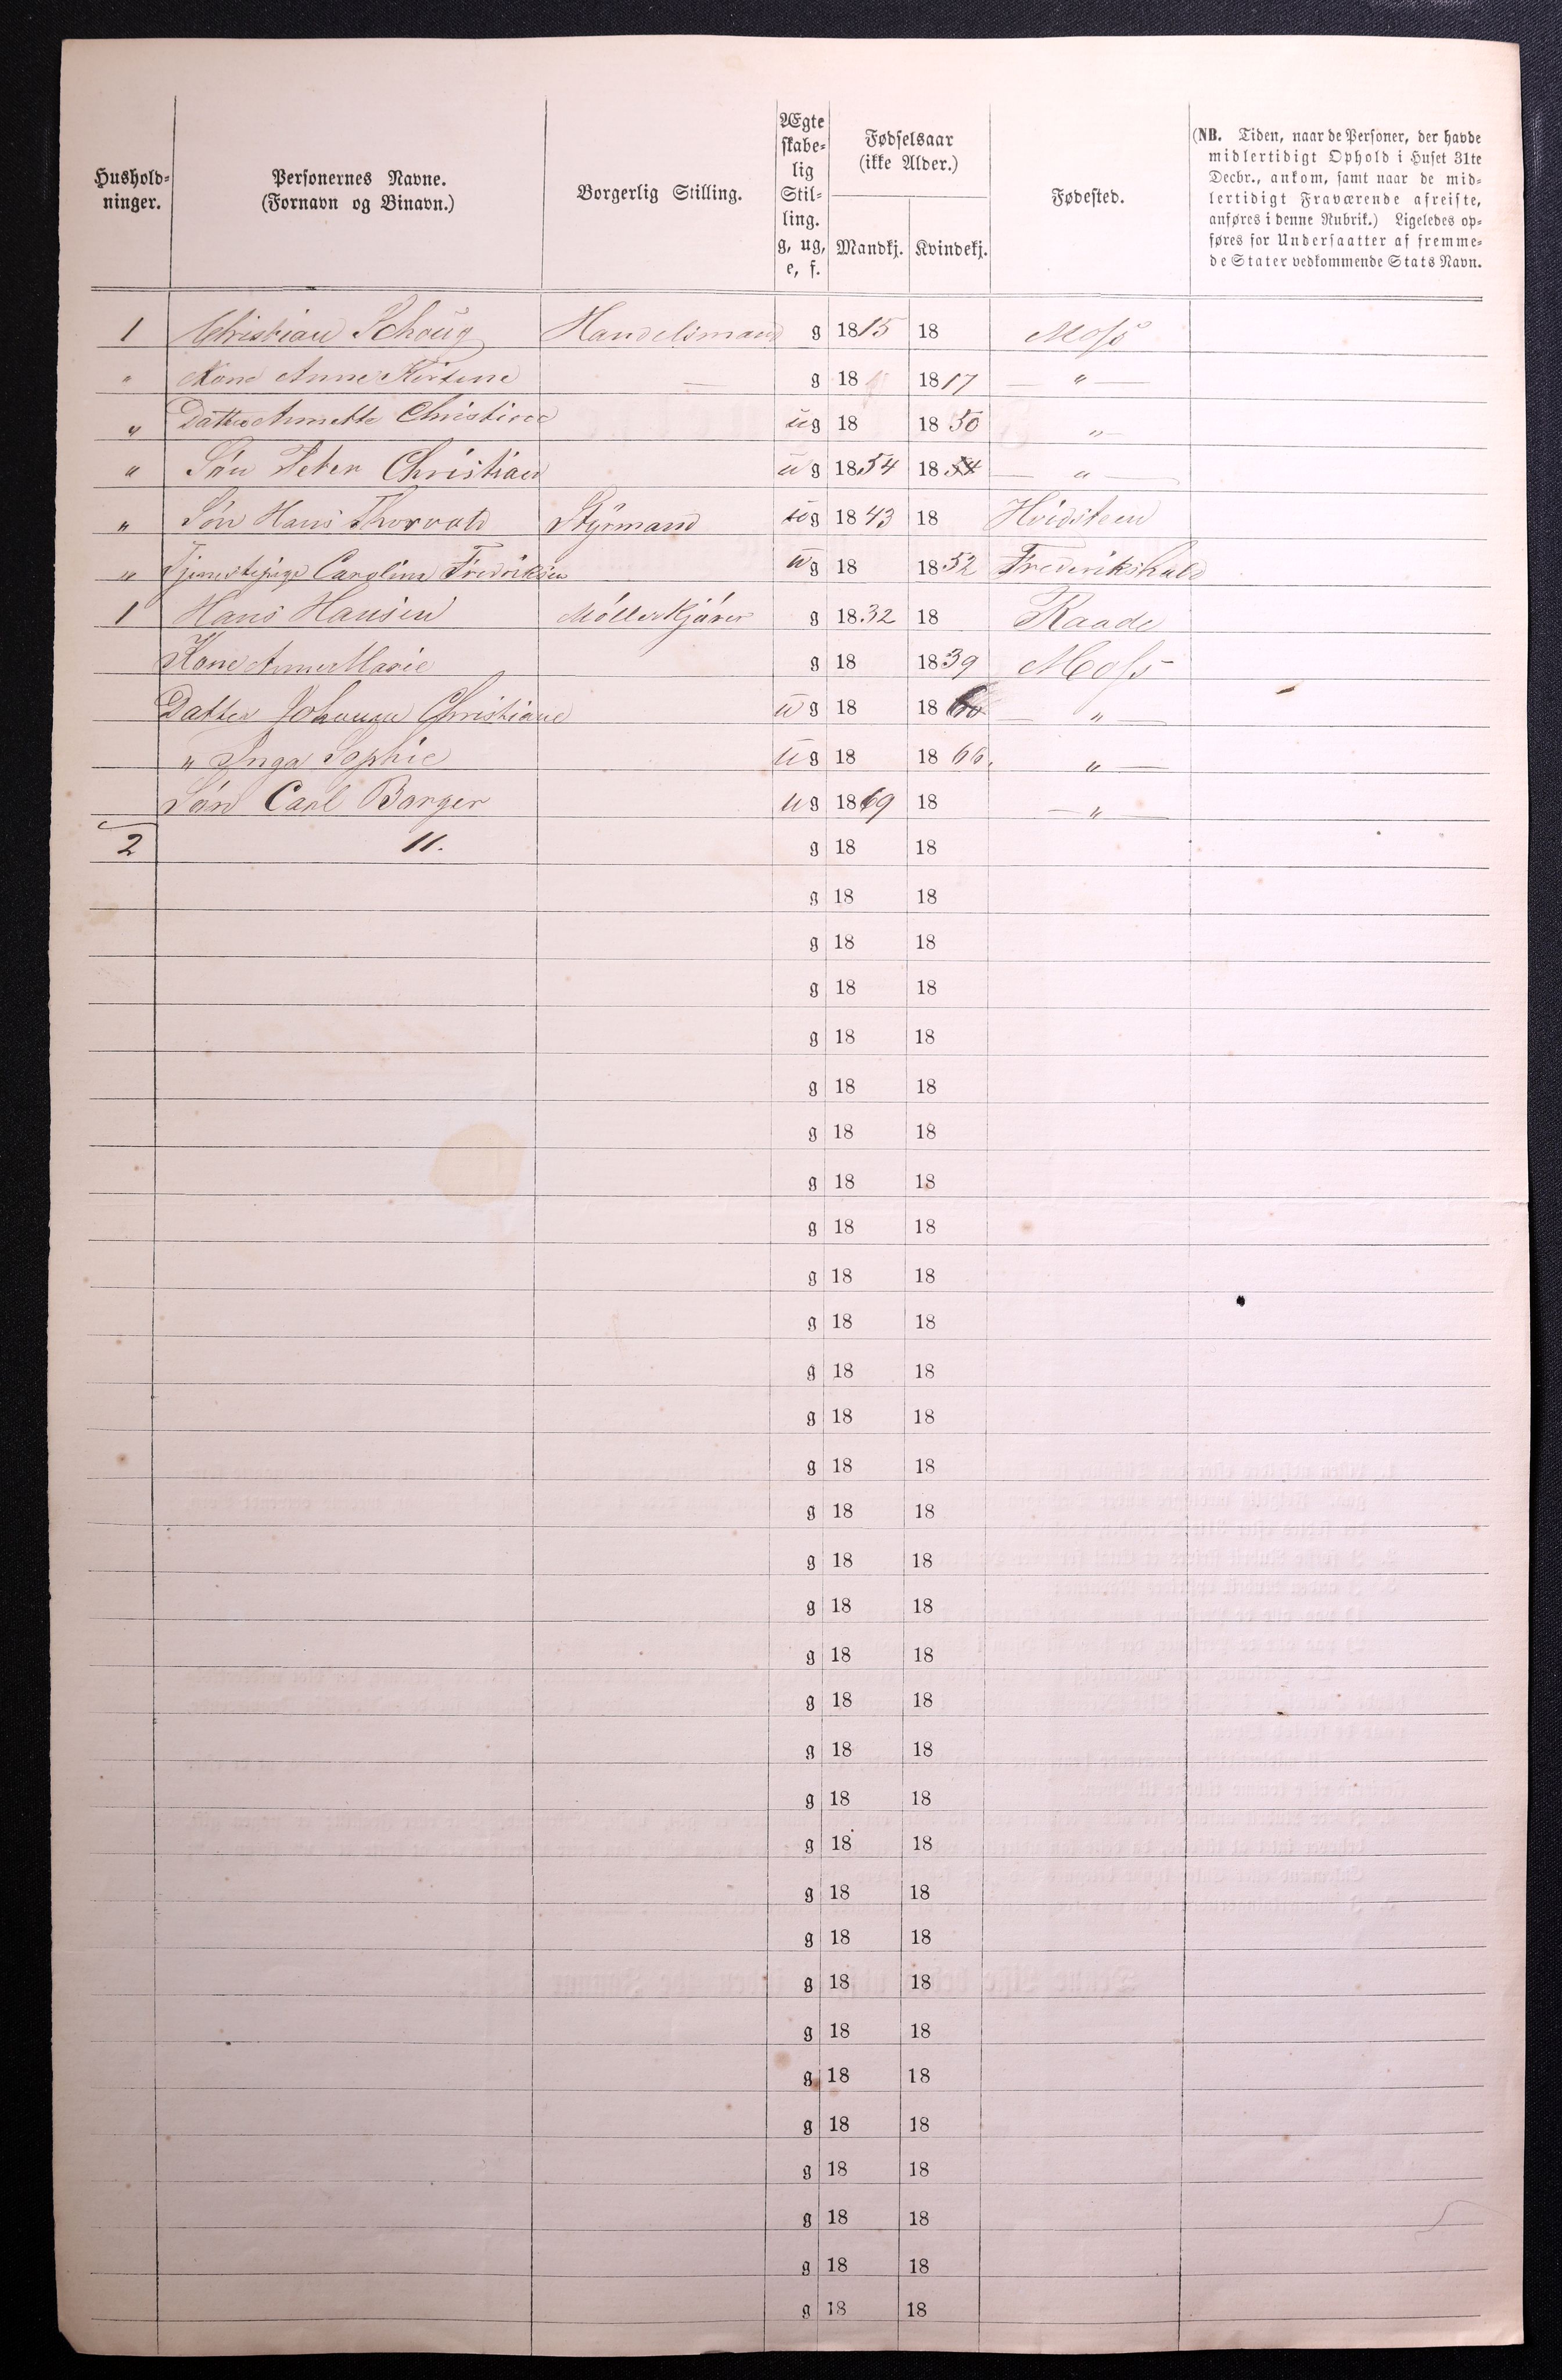 Hushold-
ninger.
Personernes Navne.
(Fornavn og Binavn.)
Borgerlig Stilling.
Ægte
skabe-
lig
Stil-
ling.
g, ug,
e, f.
Fødselsaar
(ikke Alder.)
Mandkj. Kvindekj.
Fødested.
(NB. Tiden, naar de Personer, der havde
midlertidigt Ophold i Huset 31te
Decbr., ankom, samt naar de mid-
lertidigt Fraværende afreiste,
anføres i denne Rubrik.) Ligeledes op-
føres for Undersaatter af fremme-
de Stater vedkommende Stats Navn.
1 Christian Schoug Handelsmand g 1815 18 Moss
" Kone Anne Kirtine — g 18 1817 — " —
" Datter Annette Christine ug 18 1850 "
" Søn Peter Christian ug 1854 1854 — " —
" Søn Hans Thorvald Styrmand ug 1843 18 Hvidsteen
" Tjenestepige Caroline Fredriksen ug 18 1852 Frederikshald
1 Hans Hansen Møllerkjører g 1832 18 Raade
Kone Anne Marie g 18 1839 Moss
Datter Johanne Christiane ug 18 1860 — " —
" Inga Sophie ug 18 1866. " —
Søn Carl Borger ug 1869 18 — " —
2 11. g 18 18
g 18 18
g 18 18
g 18 18
g 18 18
g 18 18
g 18 18
g 18 18
g 18 18
g 18 18
g 18 18
g 18 18
g 18 18
g 18 18
g 18 18
g 18 18
g 18 18
g 18 18
g 18 18
g 18 18
g 18 18
g 18 18
g 18 18
g 18 18
g 18 18
g 18 18
g 18 18
g 18 18
g 18 18
g 18 18
g 18 18
g 18 18